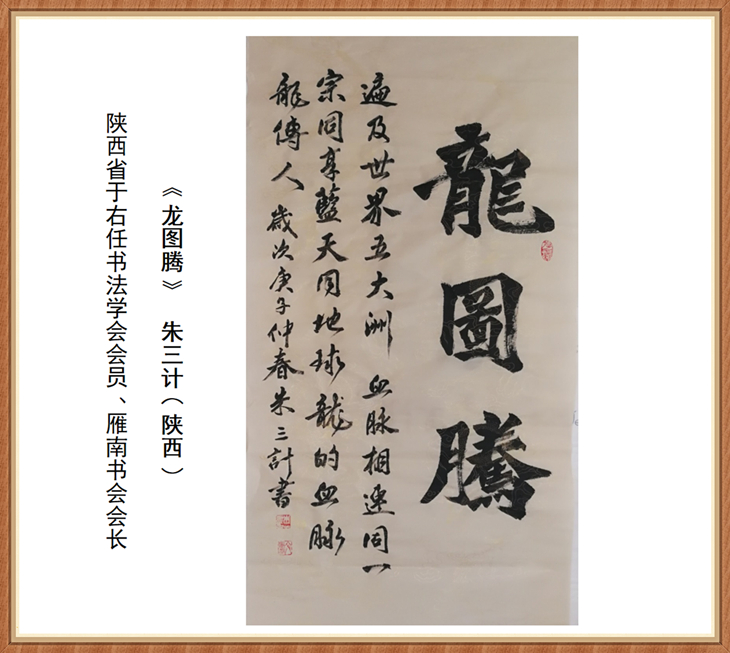 龍圖騰
遍及世界五大洲 血脉相連同一
宗同享藍天同地球龍的血脉
龍傳人歲次庚子仲春朱三計書
《龙图腾》 朱三计（陕西）
陕西省于右任书法学会会员、雁南书会会长